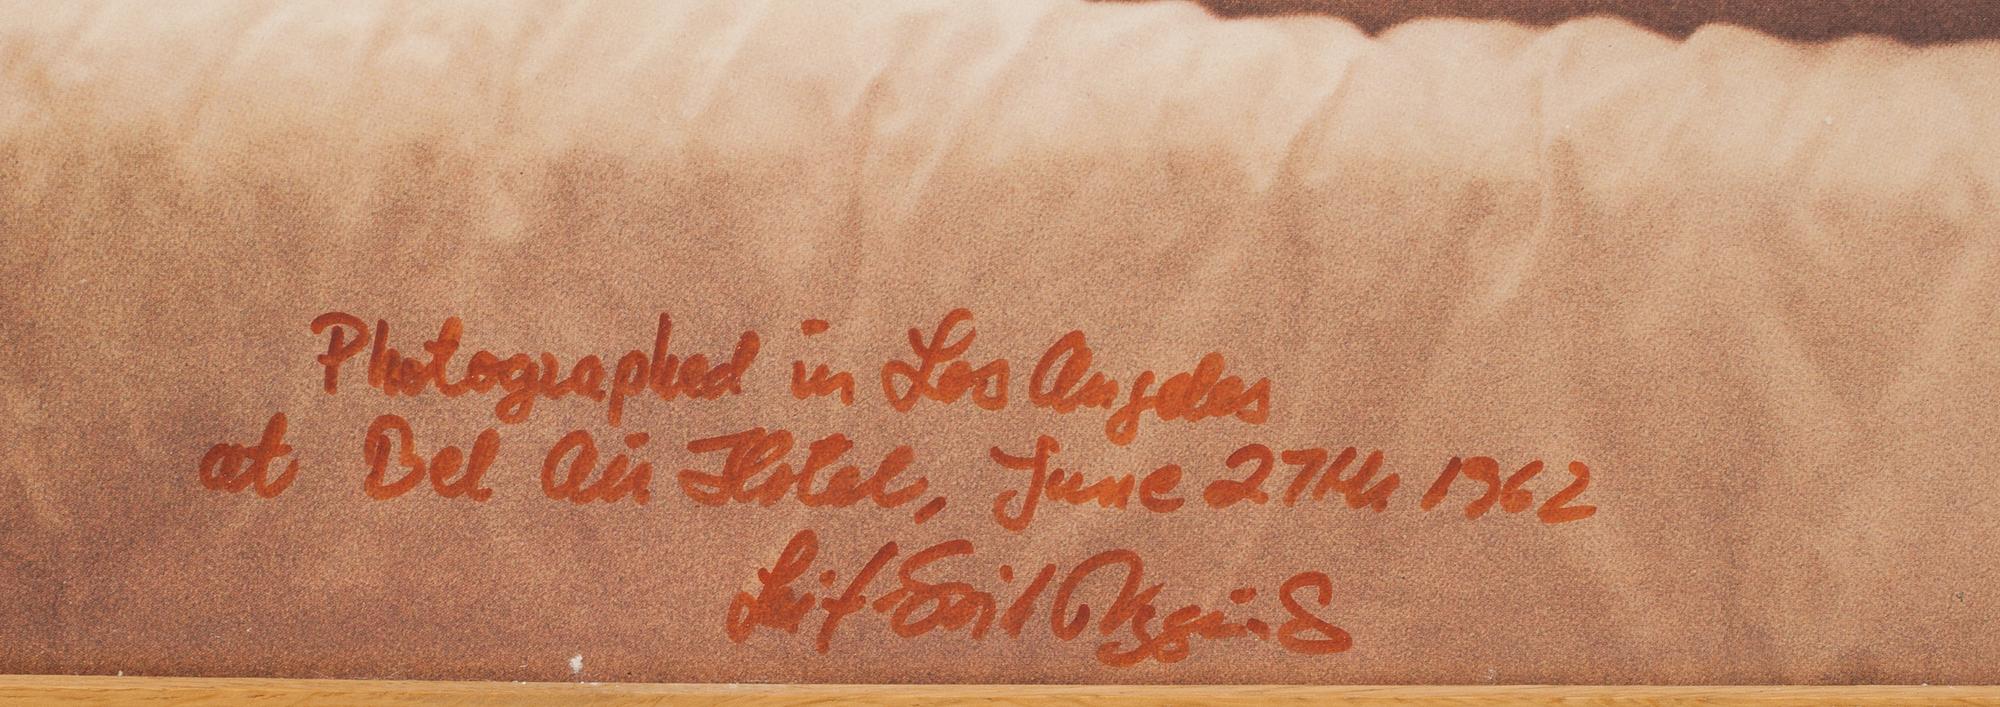 Photographed in Los Angeles
at Bel Air Hotel, June 27th 1962
Leif-Erik Nygårds